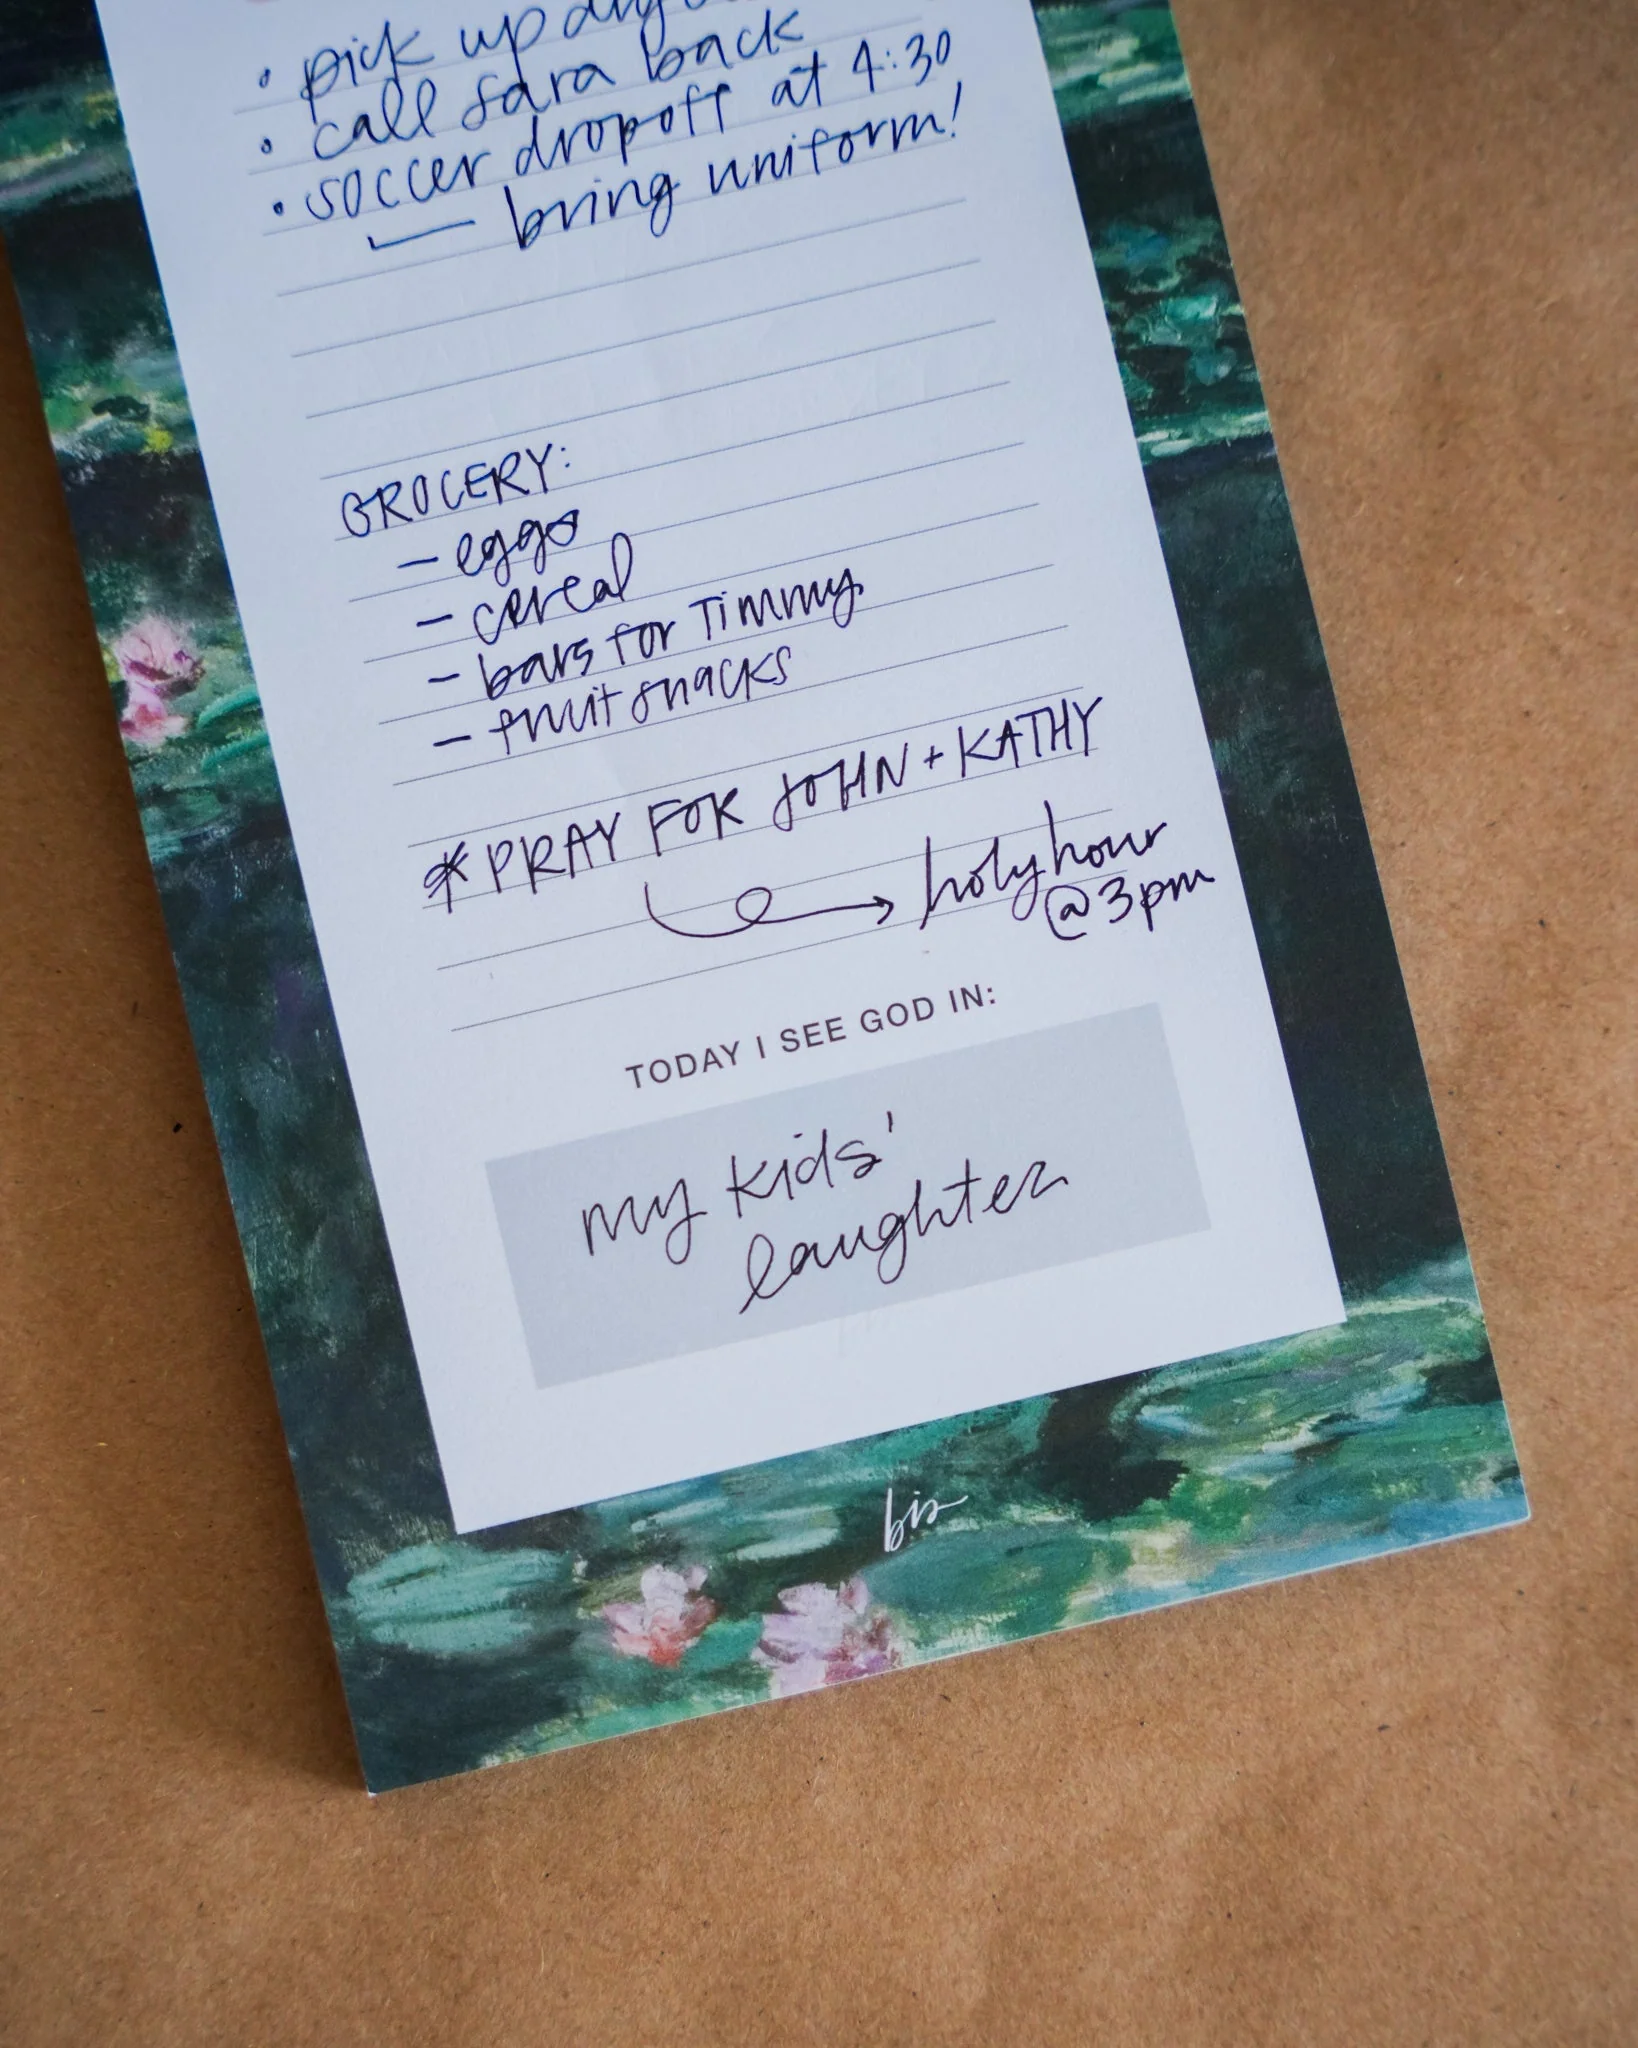 • pick up
• call Sara back
• soccer dropoff at 4:30
bring uniform!
GROCERY:
- eggs
- cereal
- bars for Timmy
- fruit snacks
* PRAY FOR JOHN + KATHY
holy hour
@ 3pm
TODAY I SEE GOD IN:
my kids'
laughter
bis